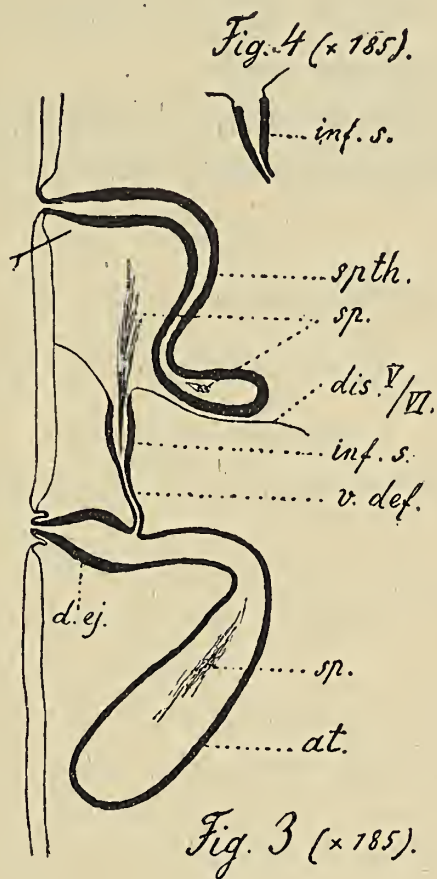 Fig. 4 (× 185).
inf. s.
spth.
sp.
dis. V/VI.
inf. s.
v. def.
d. ej.
sp.
at.
Fig. 3 (× 185).